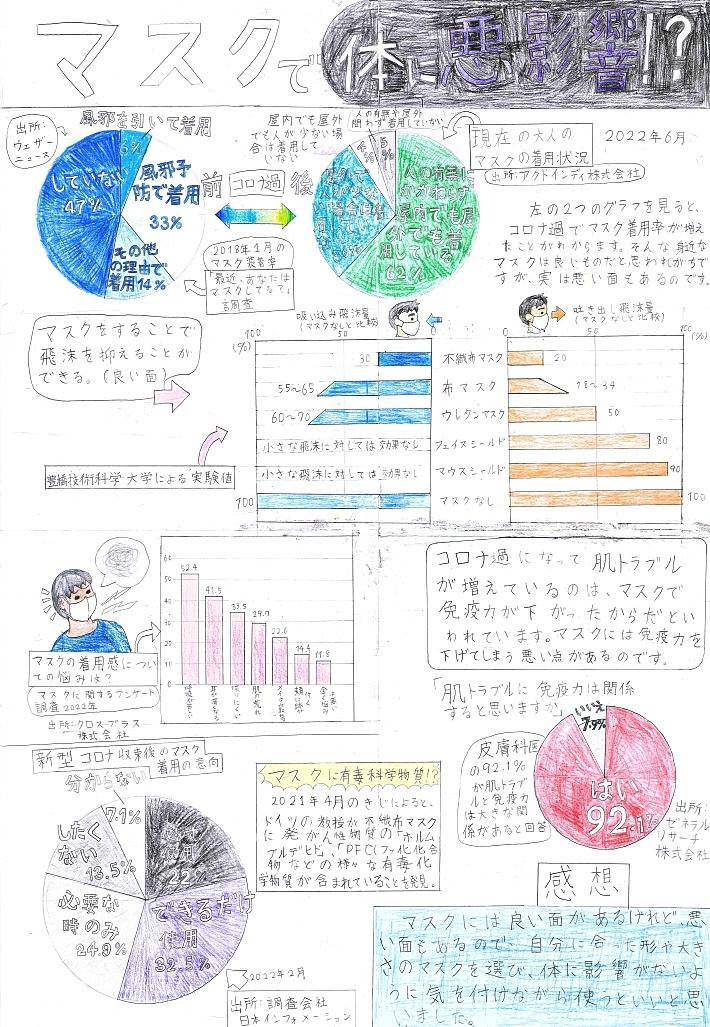 マスクで体に悪影響!?
出所:
ウェザー
ニュース
風邪を引いて着用
6%
していない
47%
風邪予
防で着用
33%
その他
の理由で
着用14%
前 コロナ過 後
2018年1月の
マスク装着率
「最近、あなたは
マスクしてる?」
調査
屋内でも屋外
でも人が少ない場
合は着用して
いない
人の有無や屋外
問わず着用していない
5%
人の有無に
かかわらず屋
内でも屋
外でも着
用している
62%
現在の大人の
マスクの着用状況
2022年6月
出所:アクトインディ株式会社
左の2つのグラフを見ると、
コロナ過でマスク着用率が増え
たことがわかります。そんな身近な
マスクは良いものだと思われがちで
すが、実は悪い面もあるのです。
マスクをすることで
飛沫を抑えることが
できる。(良い面)
豊橋技術科学大学による実験値
吸い込み飛沫量
(マスクなしと比較)
吐き出し飛沫量
(マスクなしと比較)
100 50 0
(%)
0 50 100
(%)
30 不織布マスク 20
55~65 布マスク 18~34
60~70 ウレタンマスク 50
小さな飛沫に対しては効果なし フェイスシールド 80
小さな飛沫に対しては効果なし マウスシールド 90
100 マスクなし 100
マスクの着用感につい
ての悩みは?
マスクに関するアンケート
調査2022年
出所:クロスプラス
株式会社
60
50
40
30
20
10
0
52.4
41.5
33.5
29.7
22.6
14.4
11.8
コロナ過になって肌トラブル
が増えているのは、マスクで
免疫力が下がったからだとい
われています。マスクには免疫力を
下げてしまう悪い点があるのです。
「肌トラブルに免疫力は関係
すると思いますか」
いいえ
7.9%
はい
92.1%
皮膚科医
の92.1%
が肌トラブ
ルと免疫力
は大きな関
係があると回答
出所:
ゼネラル
リサーチ
株式会社
新型コロナ収束後のマスク
着用の意向
分からない
7.1%
したく
ない
13.5%
必要な
時のみ
24.9%
使用
22%
できるだけ
使用
32.5%
2022年2月
出所:調査会社
日本インフォメーション
マスクに有毒科学物質!?
2021年4月のきじによると、
ドイツの教授が不織布マスク
に発がん性物質の「ホルム
アルデヒド」、「PFC(フッ化化合
物などの様々な有毒化
学物質が含まれていることを発見。
感想
マスクには良い面があるけれど、悪
い面もあるので、自分に合った形や大き
さのマスクを選び、体に影響がないよ
うに気を付けながら使うといいと思
いました。